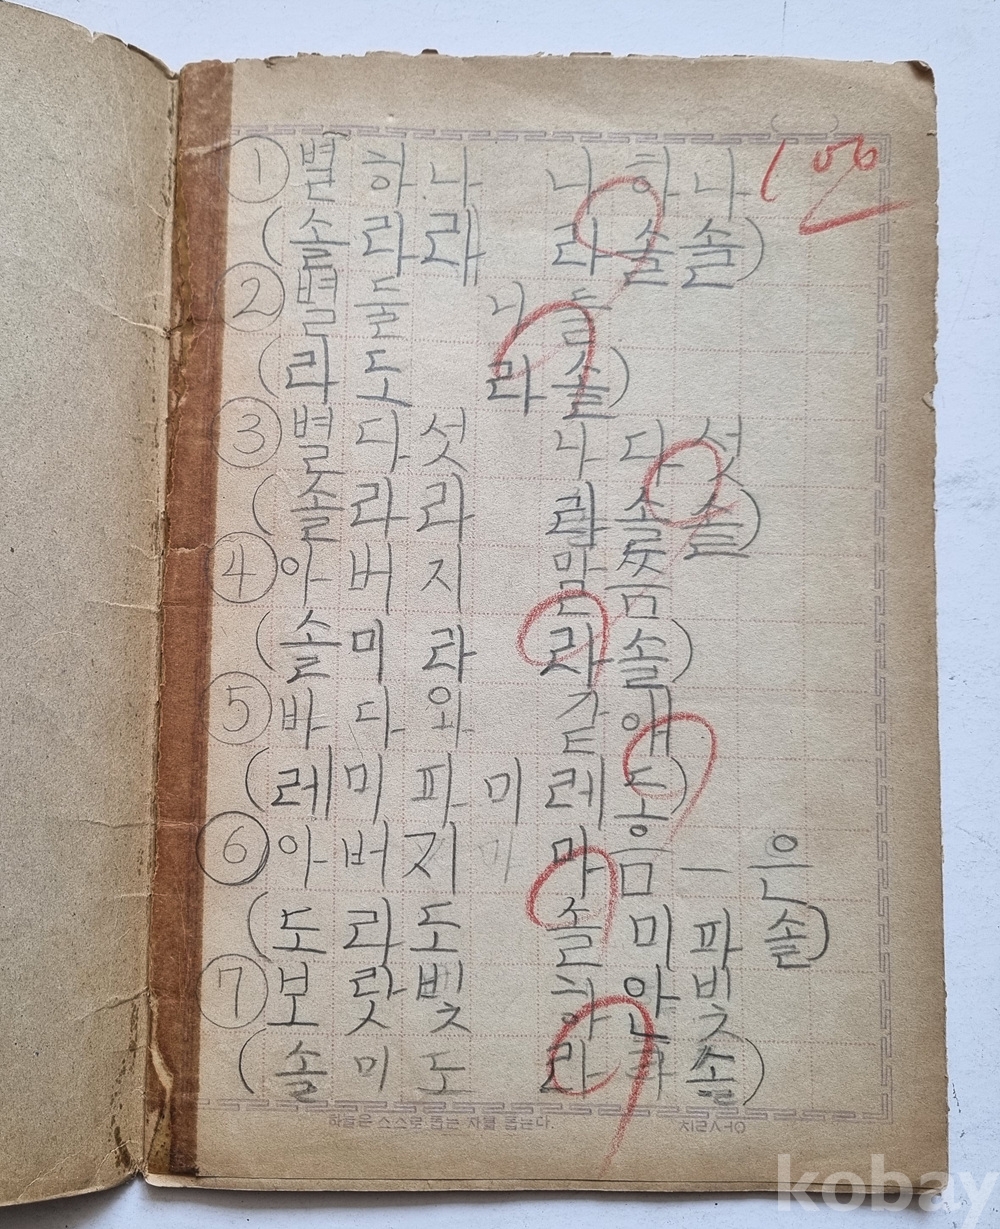 100
① 별 하 나 나 하 나
(솔 라 래 라 솔 솔)
② 별 둘 나 둘
(라 도 라 솔)
③ 별 다 섯 나 다 섯
(솔 라 라 랄 솔 솔)
④ 아 버 지 말 씀
(솔 미 라 라 솔)
⑤ 바 다 와 같 애
(레 미 파 미 레 동)
⑥ 아 버 지 마 음 ㅡ 은
(도 라 도 솔 미 파 솔)
⑦ 보 랏 빛 하 얀 빛
(솔 미 도 라 솔)
하늘은 스스로 돕는 자를 돕는다.
kobay